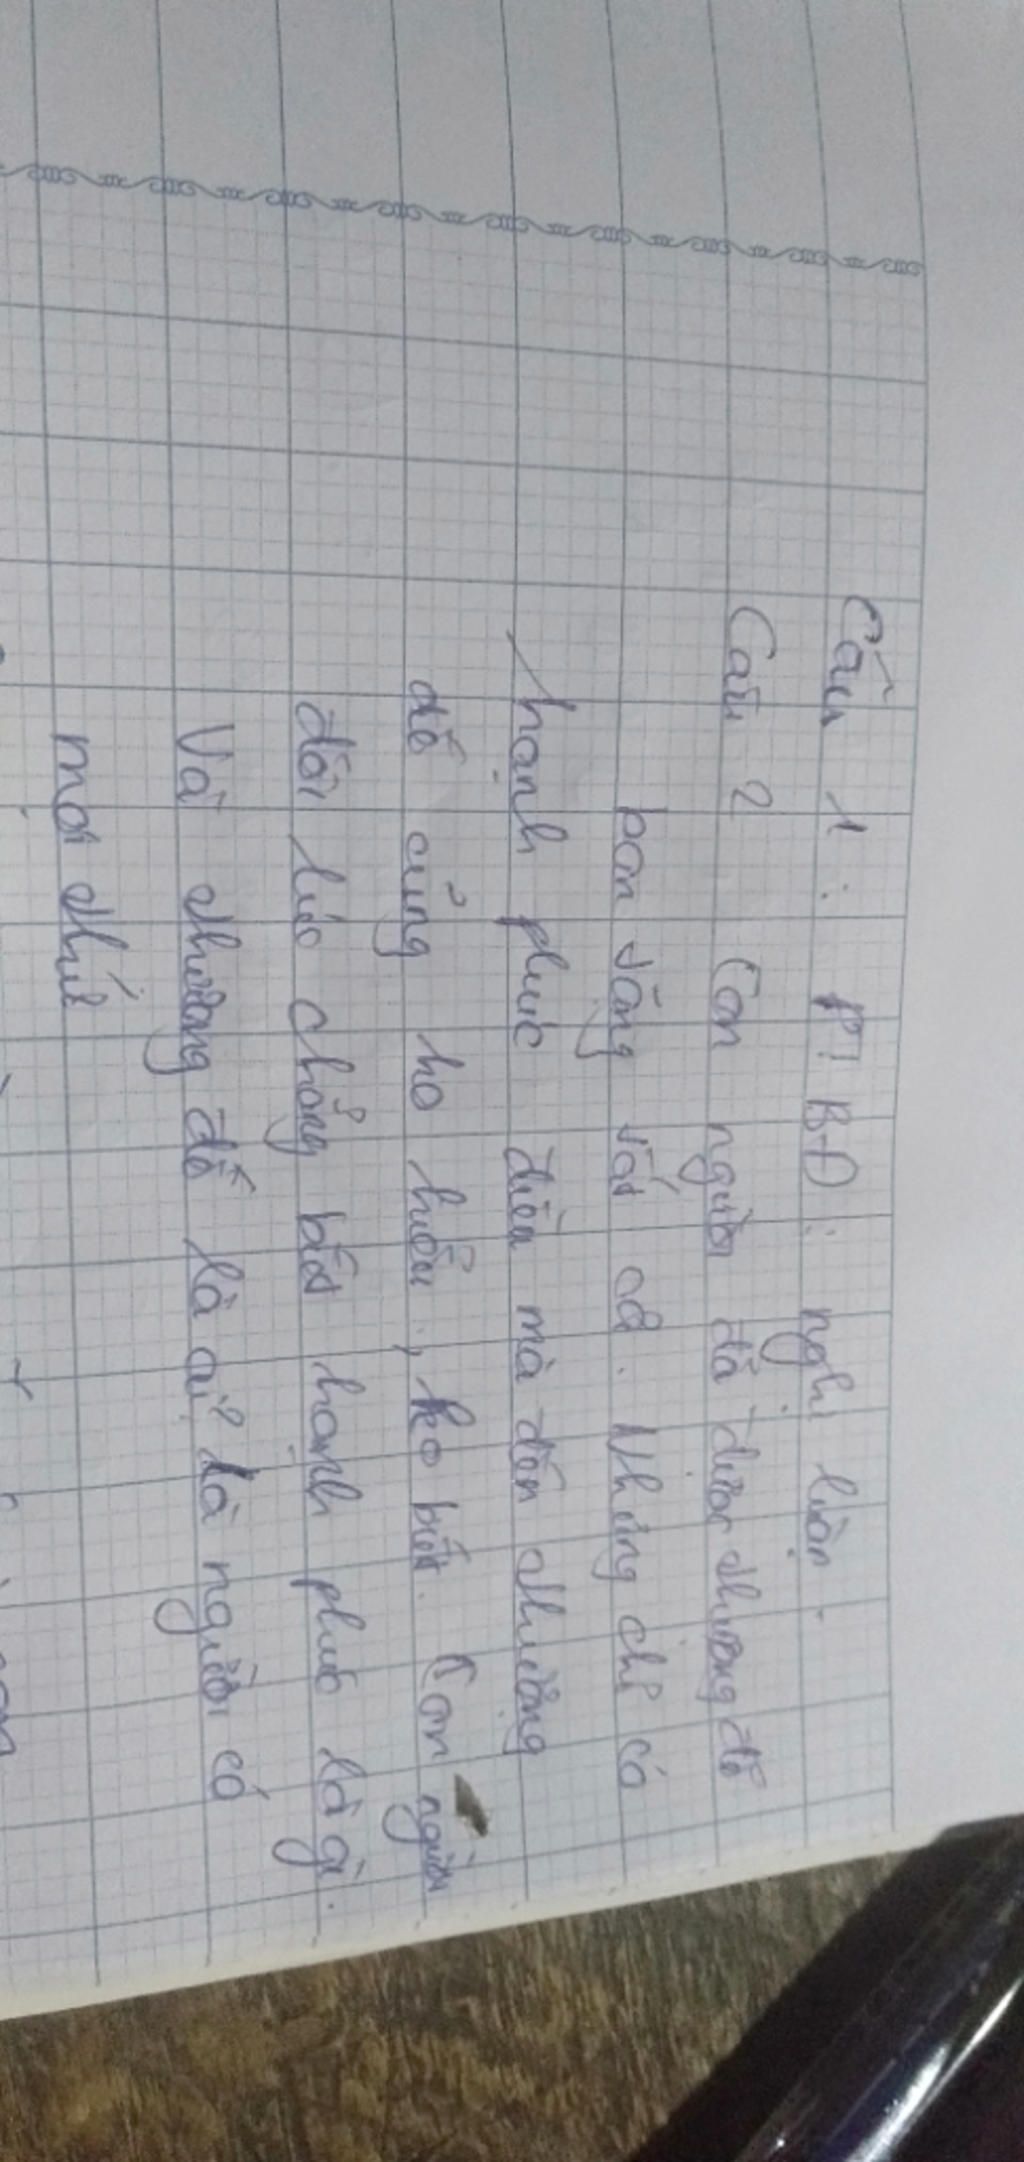 Câu 1 : PTBĐ : nghị luận .
Câu 2 Con người đã được thượng đế
ban vàng rất cả . Nhưng chỉ có
hạnh phúc điều mà đến thượng
đế cũng ko hiểu , ko biết . Con người
đôi lúc chẳng biết hạnh phúc là gì .
Và thượng đế là ai? Là người có
mọi thứ